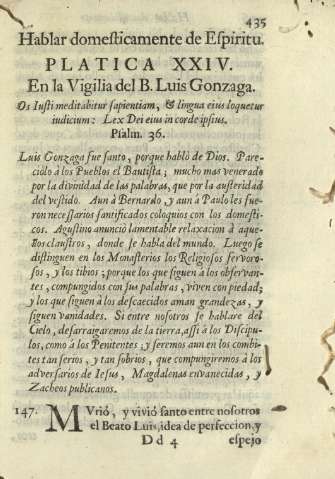 435
Hablar domesticamente de Espiritu.
PLATICA XXIV.
En la Vigilia del B. Luis Gonzaga.
Os Iusti meditabitur sapientiam, & lingua eius loquetur
iudicium: Lex Dei eius in corde ipsius.
Psalm. 36.
Luis Gonzaga fue santo, porque hablò de Dios. Pare-
ciolo à los Pueblos el Bautista; mucho mas venerado
por la divinidad de las palabras, que por la austeridad
del vestido. Aun à Bernardo, y aun à Paulo les fue-
ron necessarios santificados coloquios con los domesti-
cos. Agustino anunciò lamentable relaxacion à aque-
llos claustros, donde se habla del mundo. Luego se
distinguen en los Monasterios los Religiosos fervoro-
sos, y los tibios; porque los que siguen à los observan-
tes, compungidos con sus palabras, viven con piedad;
y los que siguen à los descaecidos aman grandezas, y
siguen vanidades. Si entre nosotros se hablare del
Cielo, desarraigaremos de la tierra, assi à los Discipu-
los, como à los Penitentes; y seremos aun en los combi-
tes tan serios, y tan sobrios, que compungiremos à los
adversarios de Iesus, Magdalenas envanecidas, y
Zacheos publicanos.
147. MVriò, y viviò santo entre nosotros
el Beato Luis, idea de perfeccion, y
Dd 4 espejo